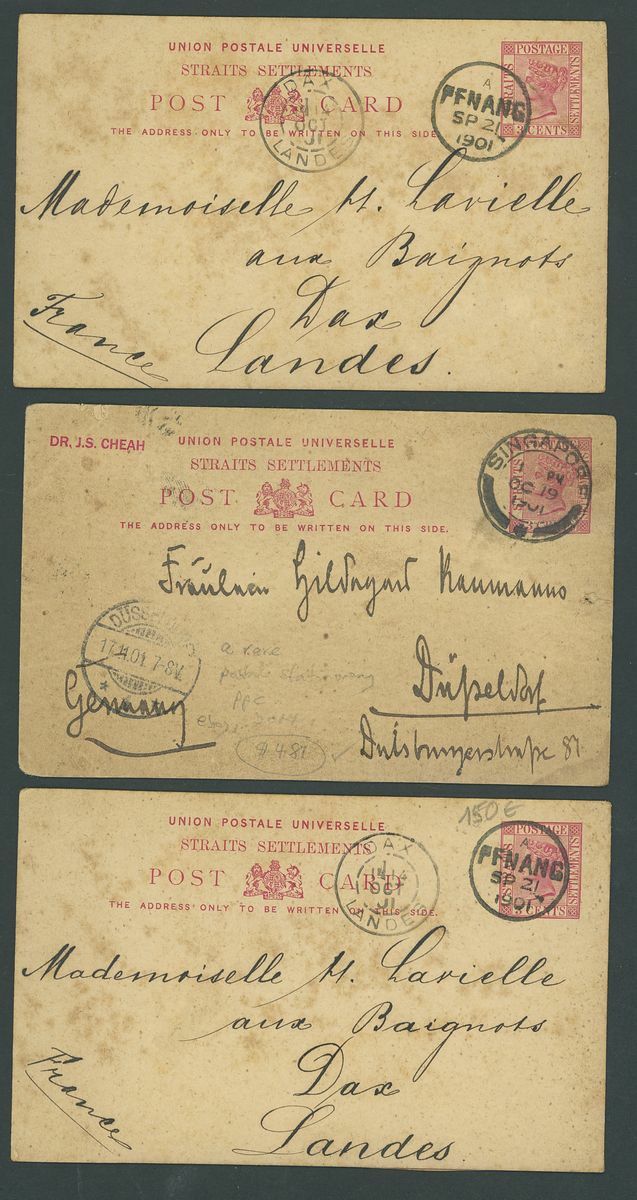 UNION POSTALE UNIVERSELLE
STRAITS SETTLEMENTS
POST CARD
THE ADDRESS ONLY TO BE WRITTEN ON THIS SIDE.
POSTAGE
STRAITS
SETTLEMENTS
3 CENTS
DAX
OCT
01
LANDES
A
PENANG
SP 21
1901
Mademoiselle M. Lavielle
aux Baignots
Dax
Landes.
France
DR. J.S. CHEAH
UNION POSTALE UNIVERSELLE
STRAITS SETTLEMENTS
POST CARD
THE ADDRESS ONLY TO BE WRITTEN ON THIS SIDE.
SINGAPORE
OC 19
1901
Fräulein Hildegard Naumanns
DÜSSELDORF
17.11.01. 7-8V.
Germany
a rare
postal stationery
ppc
$487
Düßeldorf
Duisburgerstraße 87
150 €
UNION POSTALE UNIVERSELLE
STRAITS SETTLEMENTS
POST CARD
THE ADDRESS ONLY TO BE WRITTEN ON THIS SIDE.
POSTAGE
STRAITS
SETTLEMENTS
3 CENTS
DAX
OCT
01
LANDES
A
PENANG
SP 21
1901
Mademoiselle M. Lavielle
aux Baignots
Dax
Landes
France